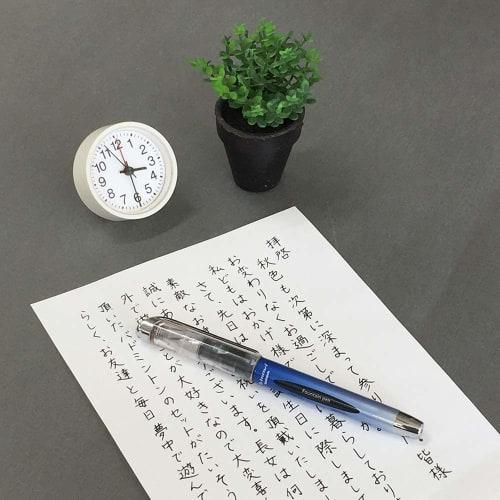 11 12 1
10 2
9 3
8 4
7 6 5
拝啓
秋色も次第に深まって参り 皆様
お変わりなくお過ごしで
私どもはおかげ様で 暮らしており
さて、先日は 誕生日に際しまし
素敵なお を頂戴いたしまし
誠にあ ございます。長女は何
外で とが大好きなので大変喜
頂いたバドミントンのセットがたいそう
らしく、お友達と毎日夢中で遊んで
Fountain pen